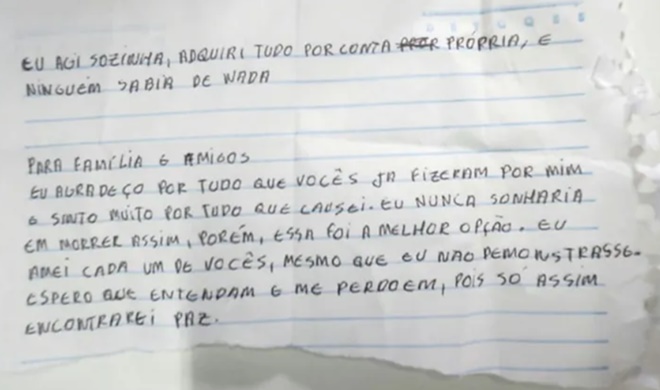 EU AGI SOZINHA, ADQUIRI TUDO POR CONTA PRÓPRIA, E
NINGUÉM SABIA DE NADA
PARA FAMÍLIA E AMIGOS
EU AGRADEÇO POR TUDO QUE VOCÊS JA FIZERAM POR MIM
E SINTO MUITO POR TUDO QUE CAUSEI. EU NUNCA SONHARIA
EM MORRER ASSIM, PORÉM, ESSA FOI A MELHOR OPÇÃO. EU
AMEI CADA UM DE VOCÊS, MESMO QUE EU NAO DEMONSTRASSE.
ESPERO QUE ENTENDAM E ME PERDOEM, POIS SÓ ASSIM
ENCONTRAREI PAZ.